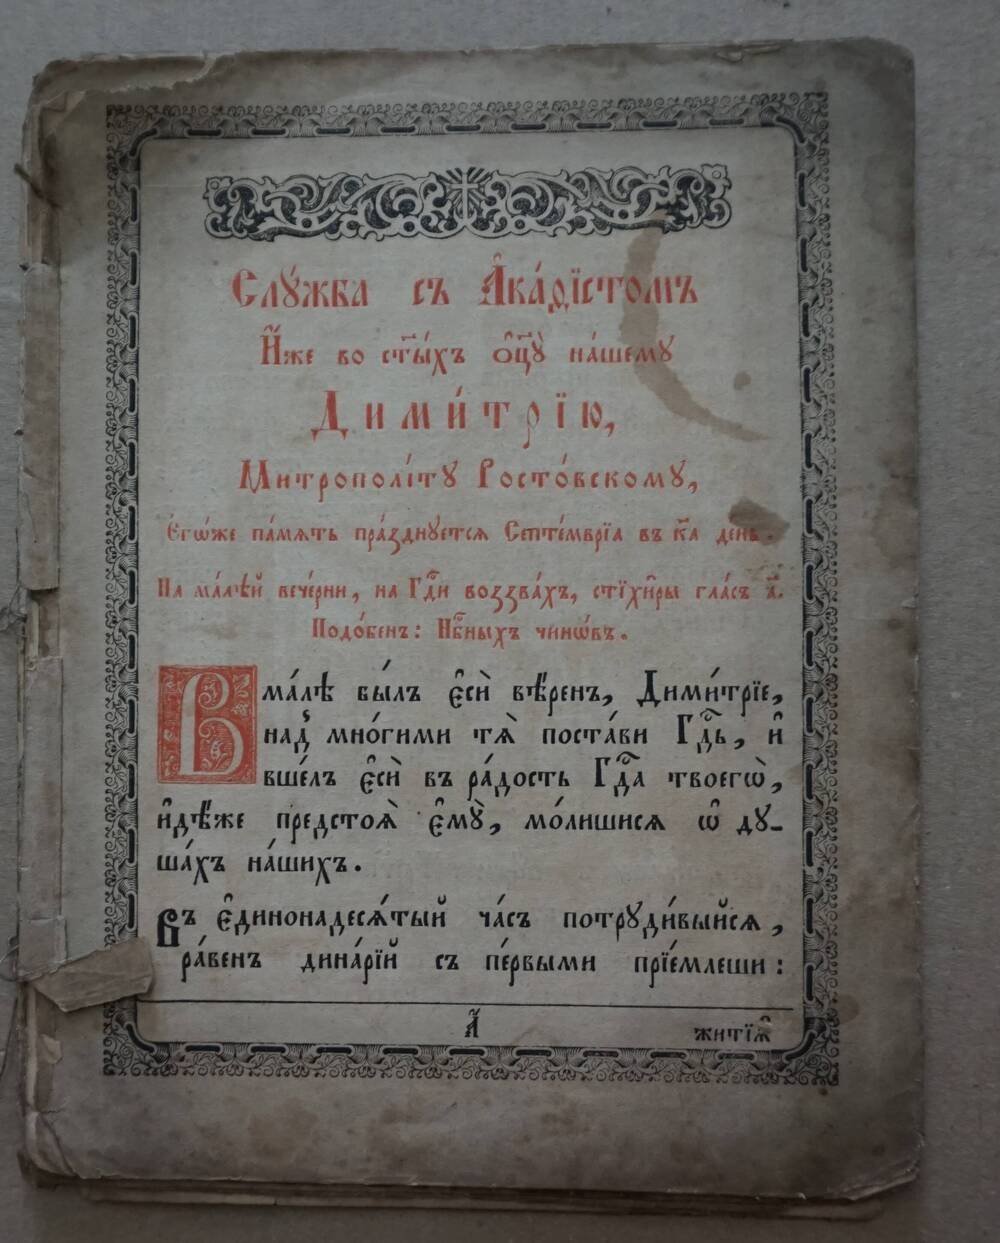 Слꙋ́жба съ А҆ка́ѳїстомъ
И҆́же во ст҃ы́хъ ѻ҆ц҃ꙋ̀ на́шемꙋ
Дими́трїю,
Митрополі́тꙋ Росто́вскомꙋ,
Є҆гѡ́же па́мѧть пра́зднꙋетсѧ Септе́мврїа въ к҃а де́нь.
На ма́лѣй вече́рни, на Гдⷭ҇и воззва́хъ, стїхи̑ры гла́съ а҃.
Подо́бенъ: Нбⷭ҇ныхъ чинѡ́въ.
В ма́лѣ бы́лъ є҆сѝ вѣ́ренъ, Дими́трїе,
над̾ мно́гими тѧ̀ поста́ви Гдⷭ҇ь, и҆
вше́лъ є҆сѝ въ ра́дость Гдⷭ҇а твоегѡ̀,
и҆дѣ́же предстоѧ̀ є҆мꙋ̀, мо́лишисѧ ѡ҆ дꙋ-
ша́хъ на́шихъ.
Въ є҆динонадесѧ́тый ча́съ потрꙋди́выйсѧ,
ра́венъ дина́рїй съ пе́рвыми прїе́млеши:
а҃
житїѧ̑